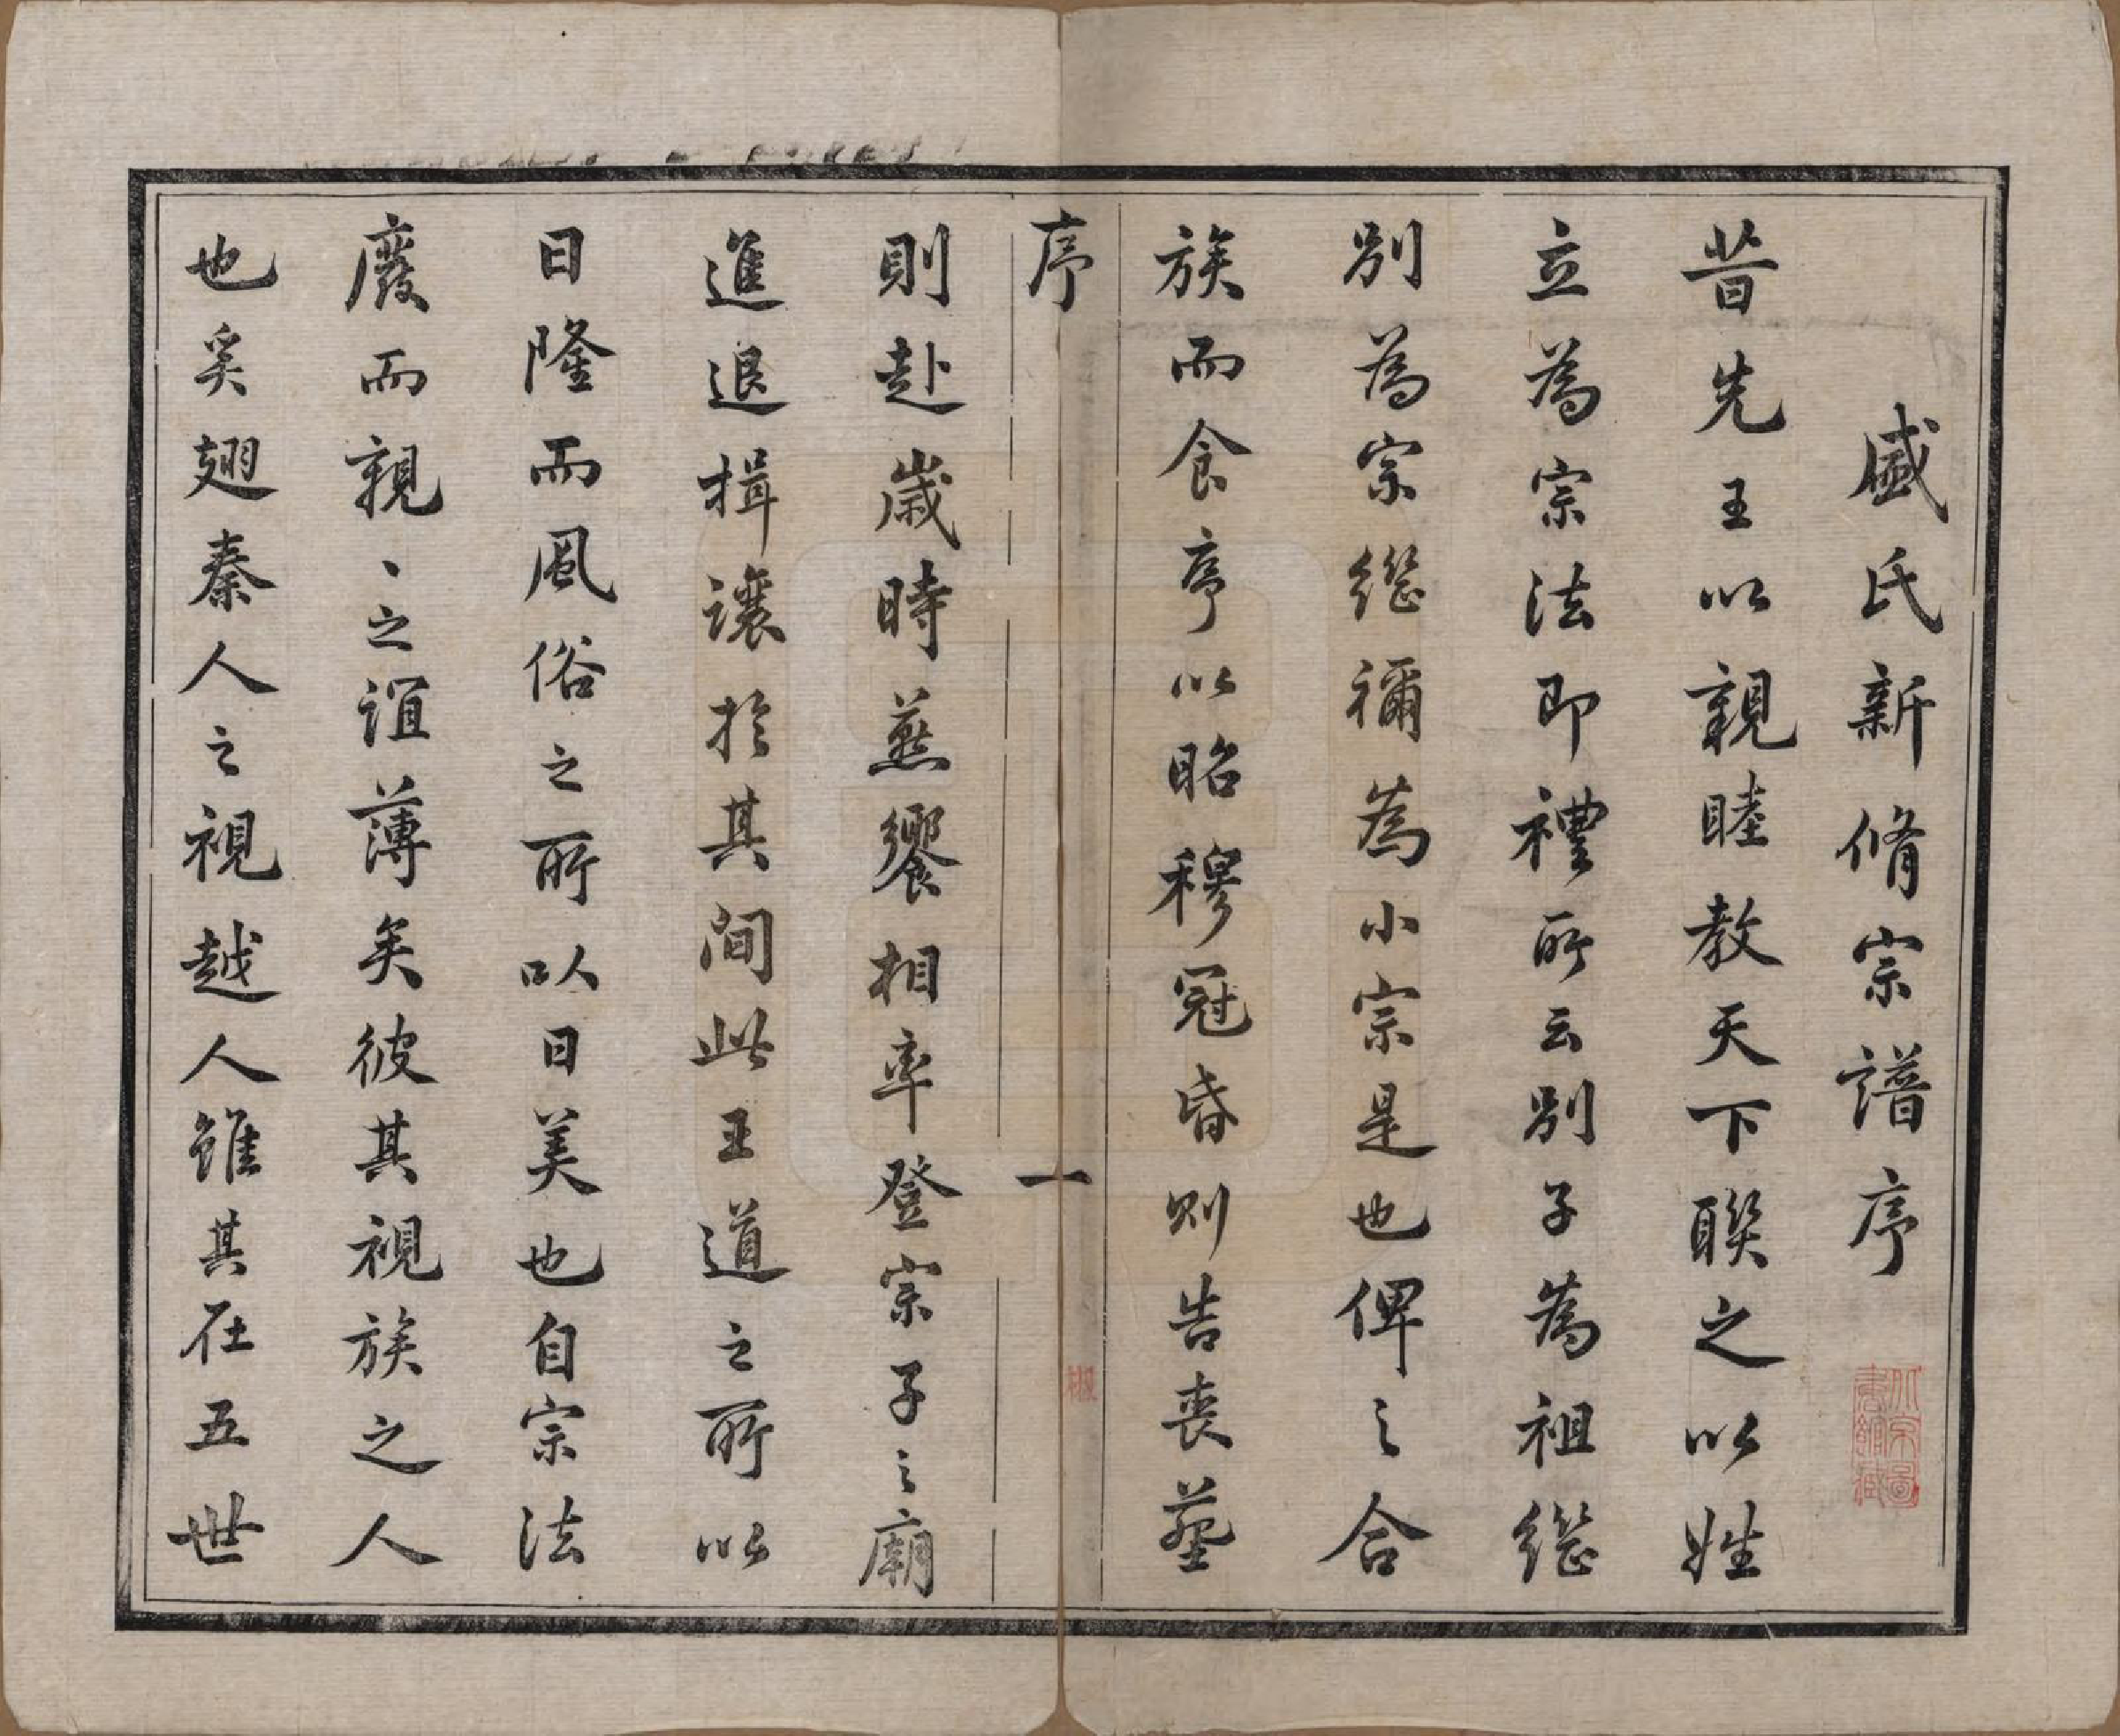 盛氏新脩宗譜序
昔先王以親睦教天下聯之以姓
立為宗法即禮所云別子為祖繼
別為宗繼禰為小宗是也俾之合
族而食序以昭穆冠昏則告喪葬
序
一
則赴歲時蒸饗相率登宗子之廟
進退揖讓於其間此王道之所以
日隆而風俗之所以日美也自宗法
廢而親、之誼薄矣彼其視族之人
也奚翅秦人之視越人雖其在五世